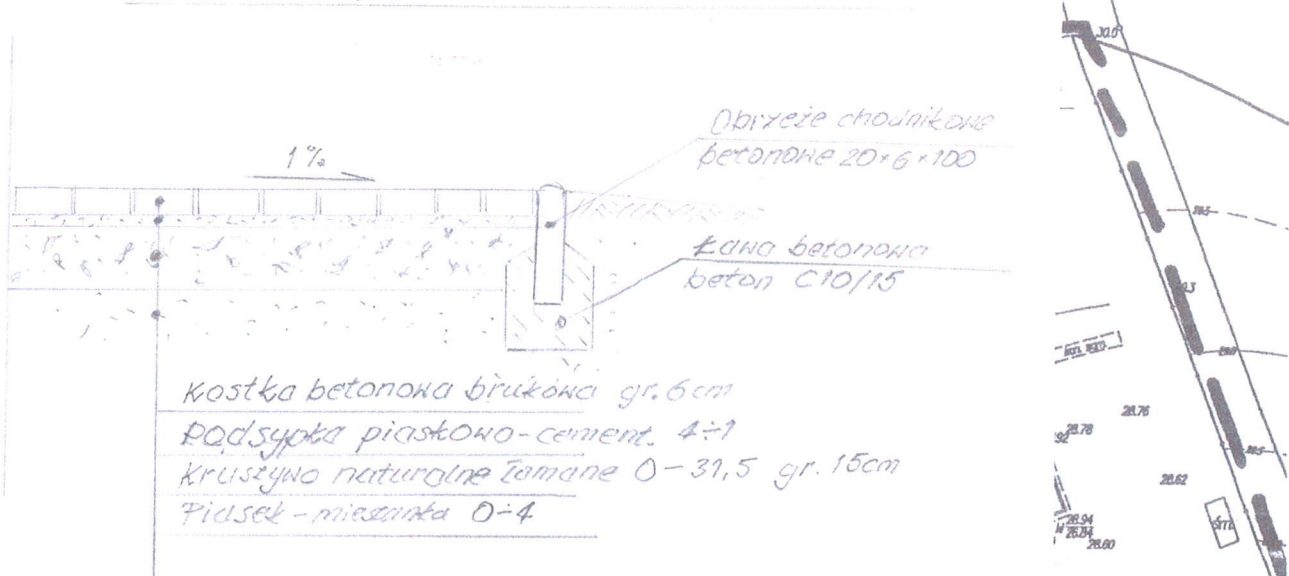 1%
Obrzeże chodnikowe
betonowe 20×6×100
Ława betonowa
beton C10/15
Kostka betonowa brukowa gr. 6cm
Podsypka piaskowo-cement. 4÷1
Kruszywo naturalne łamane 0-31,5 gr. 15cm
Piasek-mieszanka 0÷4
28.76
28.78
28.62
śm.
28.94
28.84
28.60